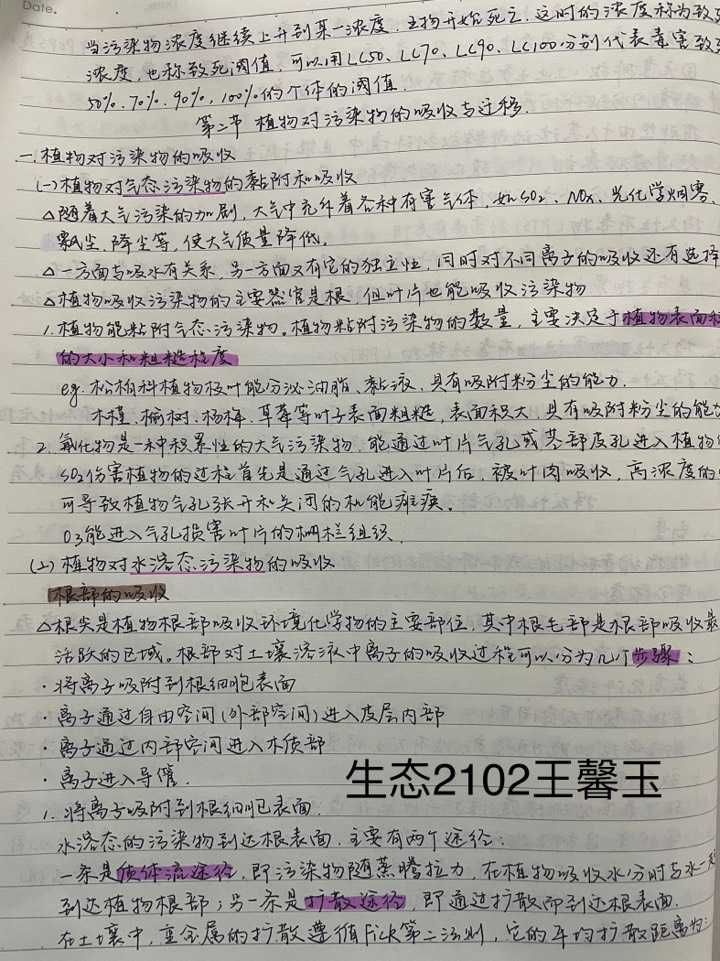 Date.
当污染物浓度继续上升到某一浓度,生物开始死亡,这时的浓度称为致死
浓度,也称致死阈值,可以用LC50、LC70、LC90、LC100分别代表毒害致死
50%、70%、90%、100%的个体的阈值.
第二节 植物对污染物的吸收与迁移.
一.植物对污染物的吸收
(一)植物对气态污染物的黏附和吸收
△随着大气污染的加剧,大气中充斥着各种有害气体,如SO2、NOx、光化学烟雾、
飘尘、降尘等,使大气质量降低.
△一方面与吸水有关系,另一方面又有它的独立性,同时对不同离子的吸收还有选择
△植物吸收污染物的主要器官是根,但叶片也能吸收污染物
1.植物能粘附气态污染物。植物粘附污染物的数量,主要决定于植物表面积
的大小和粗糙程度
eg.松柏科植物枝叶能分泌油脂、黏液,具有吸附粉尘的能力.
木槿、榆树、杨梅、草莓等叶子表面粗糙,表面积大,具有吸附粉尘的能
2.氟化物是一种积累性的大气污染物,能通过叶片气孔或茎部皮孔进入植物
SO2伤害植物的过程首先是通过气孔进入叶片后,被叶肉吸收,高浓度的
可导致植物气孔张开和关闭的机能瘫痪。
O3能进入气孔损害叶片的栅栏组织.
(二)植物对水溶态污染物的吸收
根部的吸收
△根尖是植物根部吸收环境化学物的主要部位,其中根毛部是根部吸收最
活跃的区域。根部对土壤溶液中离子的吸收过程可以分为几个步骤:
·将离子吸附到根细胞表面
·离子通过自由空间(外部空间)进入皮层内部
·离子通过内部空间进入木质部
·离子进入导管.
生态2102王馨玉
1.将离子吸附到根细胞表面.
水溶态的污染物到达根表面,主要有两个途径:
一条是质体流途径,即污染物随蒸腾拉力,在植物吸收水分时与水一起
到达植物根部;另一条是扩散途径,即通过扩散而到达根表面.
在土壤中,重金属的扩散遵循Fick第二法则,它的平均扩散距离为: